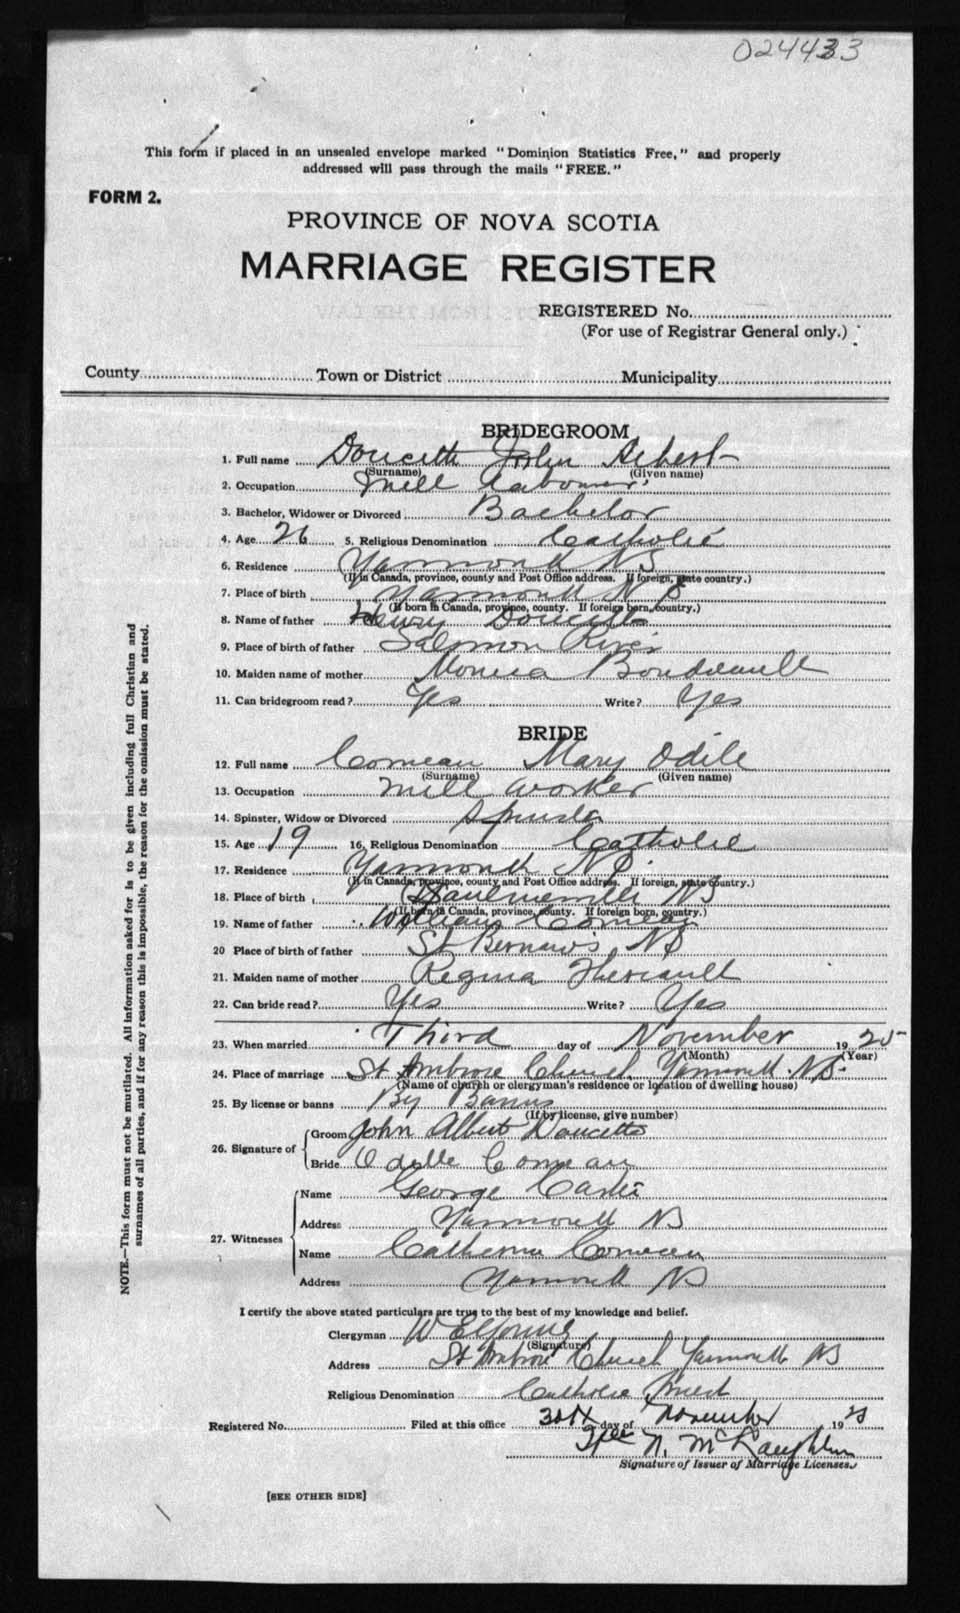 024433
This form if placed in an unsealed envelope marked "Dominion Statistics Free," and properly
addressed will pass through the mails "FREE."
FORM 2.
PROVINCE OF NOVA SCOTIA
MARRIAGE REGISTER
REGISTERED No.
(For use of Registrar General only.)
County Town or District Municipality
BRIDEGROOM
1. Full name Doucette John Albert
(Surname) (Given name)
2. Occupation Mill Labourer
3. Bachelor, Widower or Divorced Bachelor
4. Age 26 5. Religious Denomination Catholic
6. Residence Yarmouth NS
(If in Canada, province, county and Post Office address. If foreign, state country.)
7. Place of birth Yarmouth NS
(If born in Canada, province, county. If foreign born, country.)
8. Name of father Henry Doucette
9. Place of birth of father Salmon River
10. Maiden name of mother Monica Boudreault
11. Can bridegroom read? Yes Write? Yes
BRIDE
12. Full name Comeau Mary Odile
(Surname) (Given name)
13. Occupation Mill Worker
14. Spinster, Widow or Divorced Spinster
15. Age 19 16. Religious Denomination Catholic
17. Residence Yarmouth NS.
(If in Canada, province, county and Post Office address. If foreign, state country.)
18. Place of birth NS
(If born in Canada, province, county. If foreign born, country.)
19. Name of father William Comeau
20 Place of birth of father St Bernard's NS
21. Maiden name of mother Regina Theriault
22. Can bride read? Yes Write? Yes
23. When married Third day of November 1925
(Month) (Year)
24. Place of marriage St Ambrose Church Yarmouth NS.
(Name of church or clergyman's residence or location of dwelling house)
25. By license or banns By Banns
(If by license, give number)
26. Signature of Groom John Albert Doucette
Bride Odelle Comeau
27. Witnesses Name George
Address Yarmouth NS
Name Catherine Comeau
Address Yarmouth NS
I certify the above stated particulars are true to the best of my knowledge and belief.
Clergyman W E Young
(Signature)
Address St Ambrose Church Yarmouth NS
Religious Denomination Catholic Priest
Registered No. Filed at this office 30th day of November 1925
N. McLaughlin
Signature of Issuer of Marriage Licenses.
[SEE OTHER SIDE]
NOTE.—This form must not be mutilated. All information asked for is to be given including full Christian and
surnames of all parties, and if for any reason this is impossible, the reason for the omission must be stated.